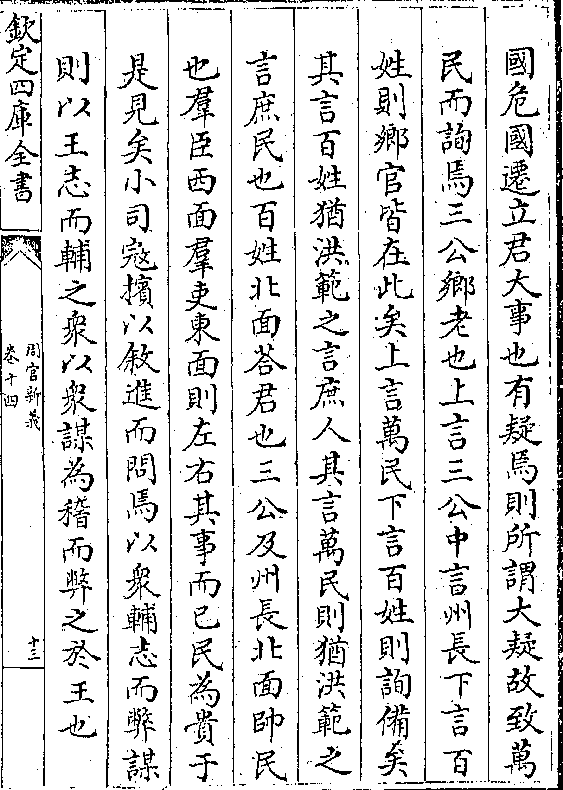 國危國遷立君大事也有疑焉則所謂大疑故致萬
民而詢焉三公鄉老也上言三公中言州長下言百
姓則鄉官皆在此矣上言萬民下言百姓則詢備矣
其言百姓猶洪範之言庶人其言萬民則猶洪範之
言庶民也百姓北面荅君也三公及州長北面帥民
也羣臣西面羣吏東面則左右其事而已民為貴于
是見矣小司寇擯以敘進而問焉以衆輔志而弊謀
則以王志而輔之衆以衆謀為稽而弊之於王也
欽定四庫全書
周官新義
卷十四
十三